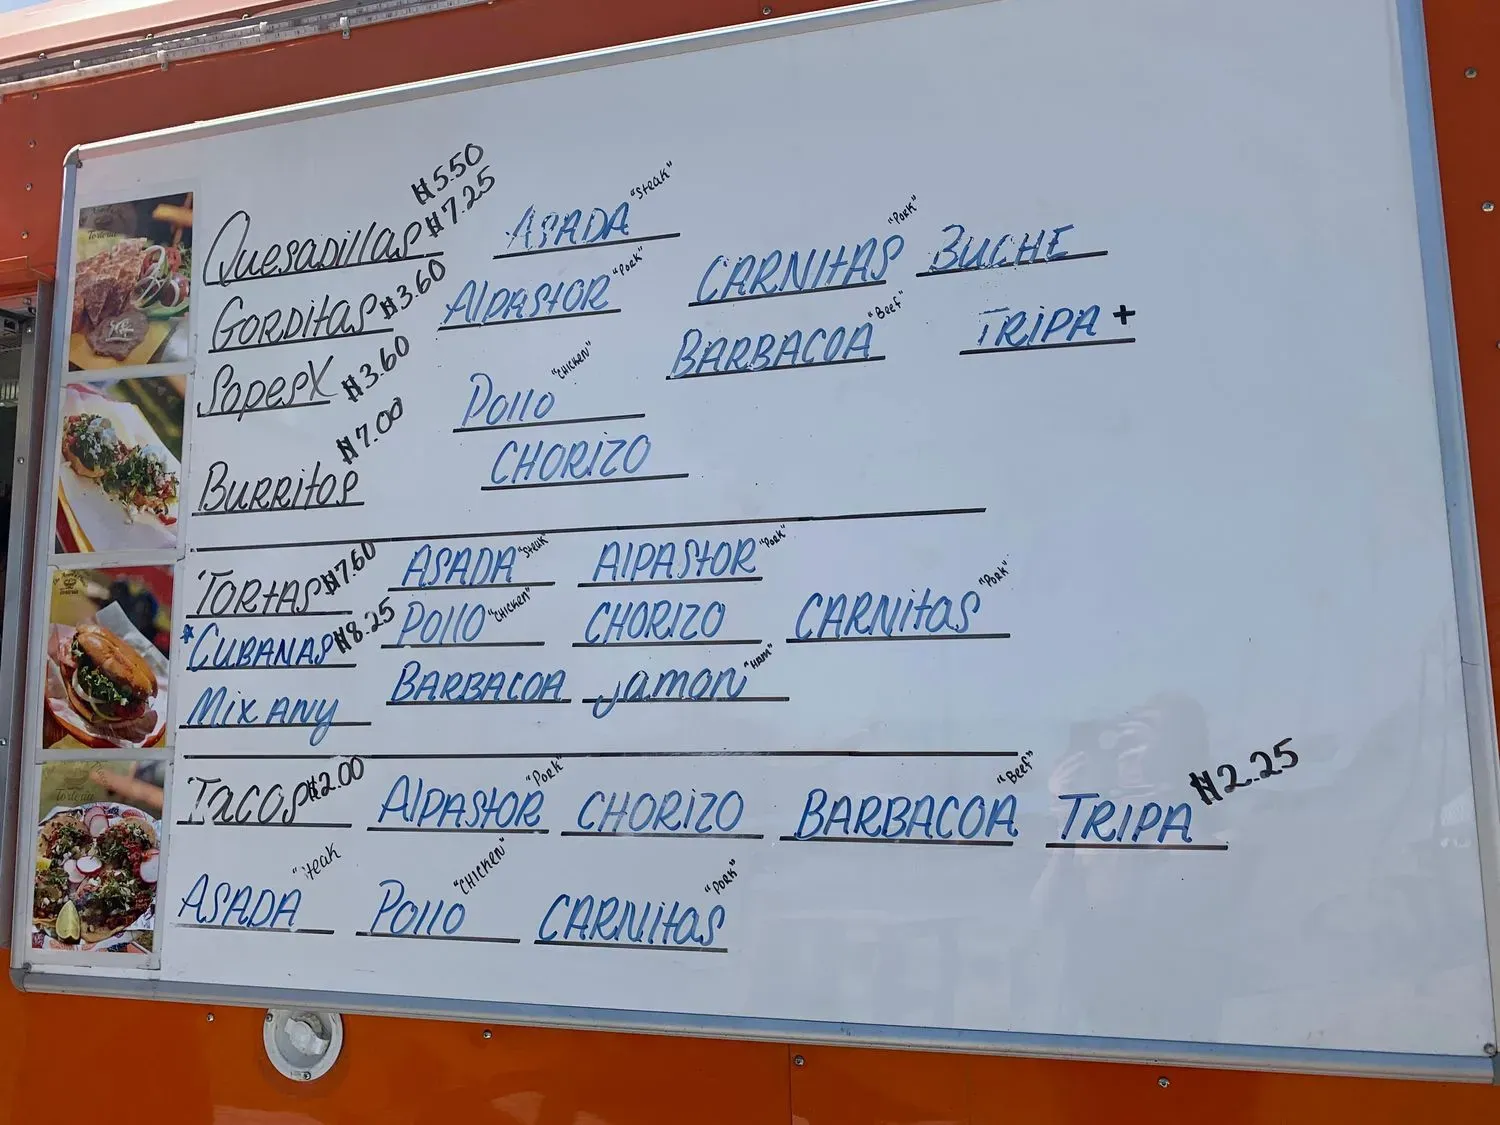 $5.50
Quesadillas $7.25 ASADA "Steak"
Gorditas $3.60 AlPAStOR "Pork" CARNitAS "Pork" BUCHE
Sopes X $3.60 Pollo "CHICKEN" BARBACOA "Beef" TRIPA +
Burritos $7.00 CHORIZO
TORtAS $7.60 ASADA "Steak" AlPAStOR "Pork"
*CUBANAS $8.25 Pollo "CHICKEN" CHORIZO CARNitAS "Pork"
Mix ANy BARBACOA jamon "Ham"
TACOS $2.00 AlPAStOR "Pork" CHORIZO BARBACOA "Beef" TRIPA $2.25
ASADA "Steak" Pollo "CHICKEN" CARNitAS "PORK"